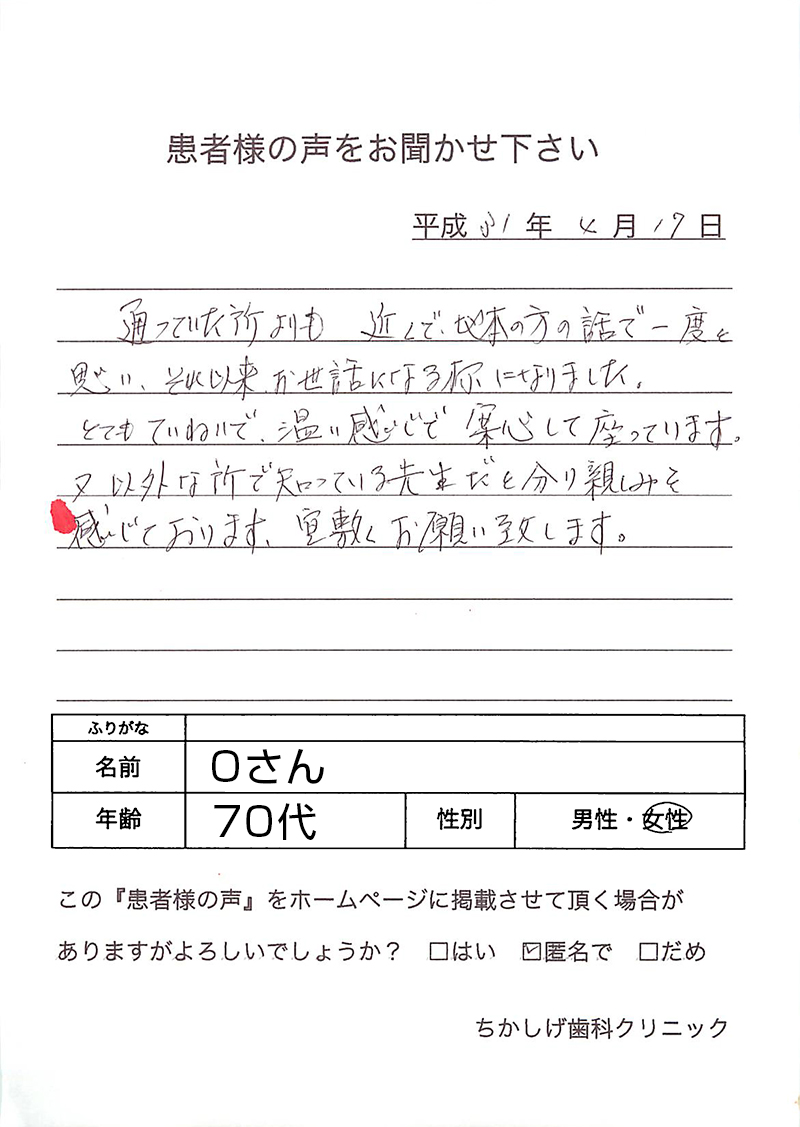 患者様の声をお聞かせ下さい
平成 31 年 4 月 17 日
通っていた所よりも 近くで、地本の方の話で一度と
思い、それ以来お世話になる様になりました。
とてもていねいで、温い感じで 安心して座っています。
又以外な所で知っている先生だと分り親しみを
感じております、宜敷くお願い致します。
ふりがな
名前 Oさん
年齢 70代 性別 男性・女性
この『患者様の声』をホームページに掲載させて頂く場合が
ありますがよろしいでしょうか? □はい ☑匿名で □だめ
ちかしげ歯科クリニック